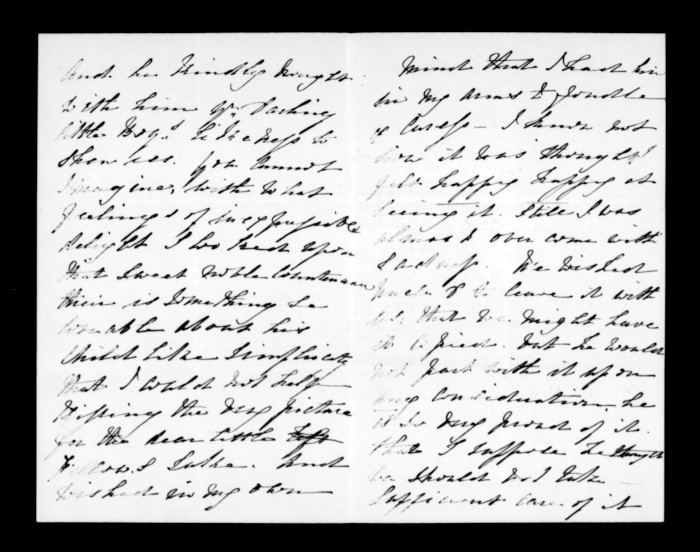 And he kindly brought
with him yr. Darling
little Boy's likeness to
show us. You cannot
imagine, with what
feelings of inexpressible
delight I looked upon
that sweet noble countenance
their is something so
lovable about his
child like simplicity
that I could not help
Kissing the very picture
for the dear little
fellows sake. And
wished in my own
mind that I had him
in my arms to fondle
& caress - I know not
how it was though I
felt happy happy at
seeing it. Still I was
almost over come with
sadness. We wished
Uncle to leave it with
us that we might have
it copied. but he would
not part with it upon
any consideration, he
is so very proud of it.
that I suppose he thought
we should not take
sufficient care of it